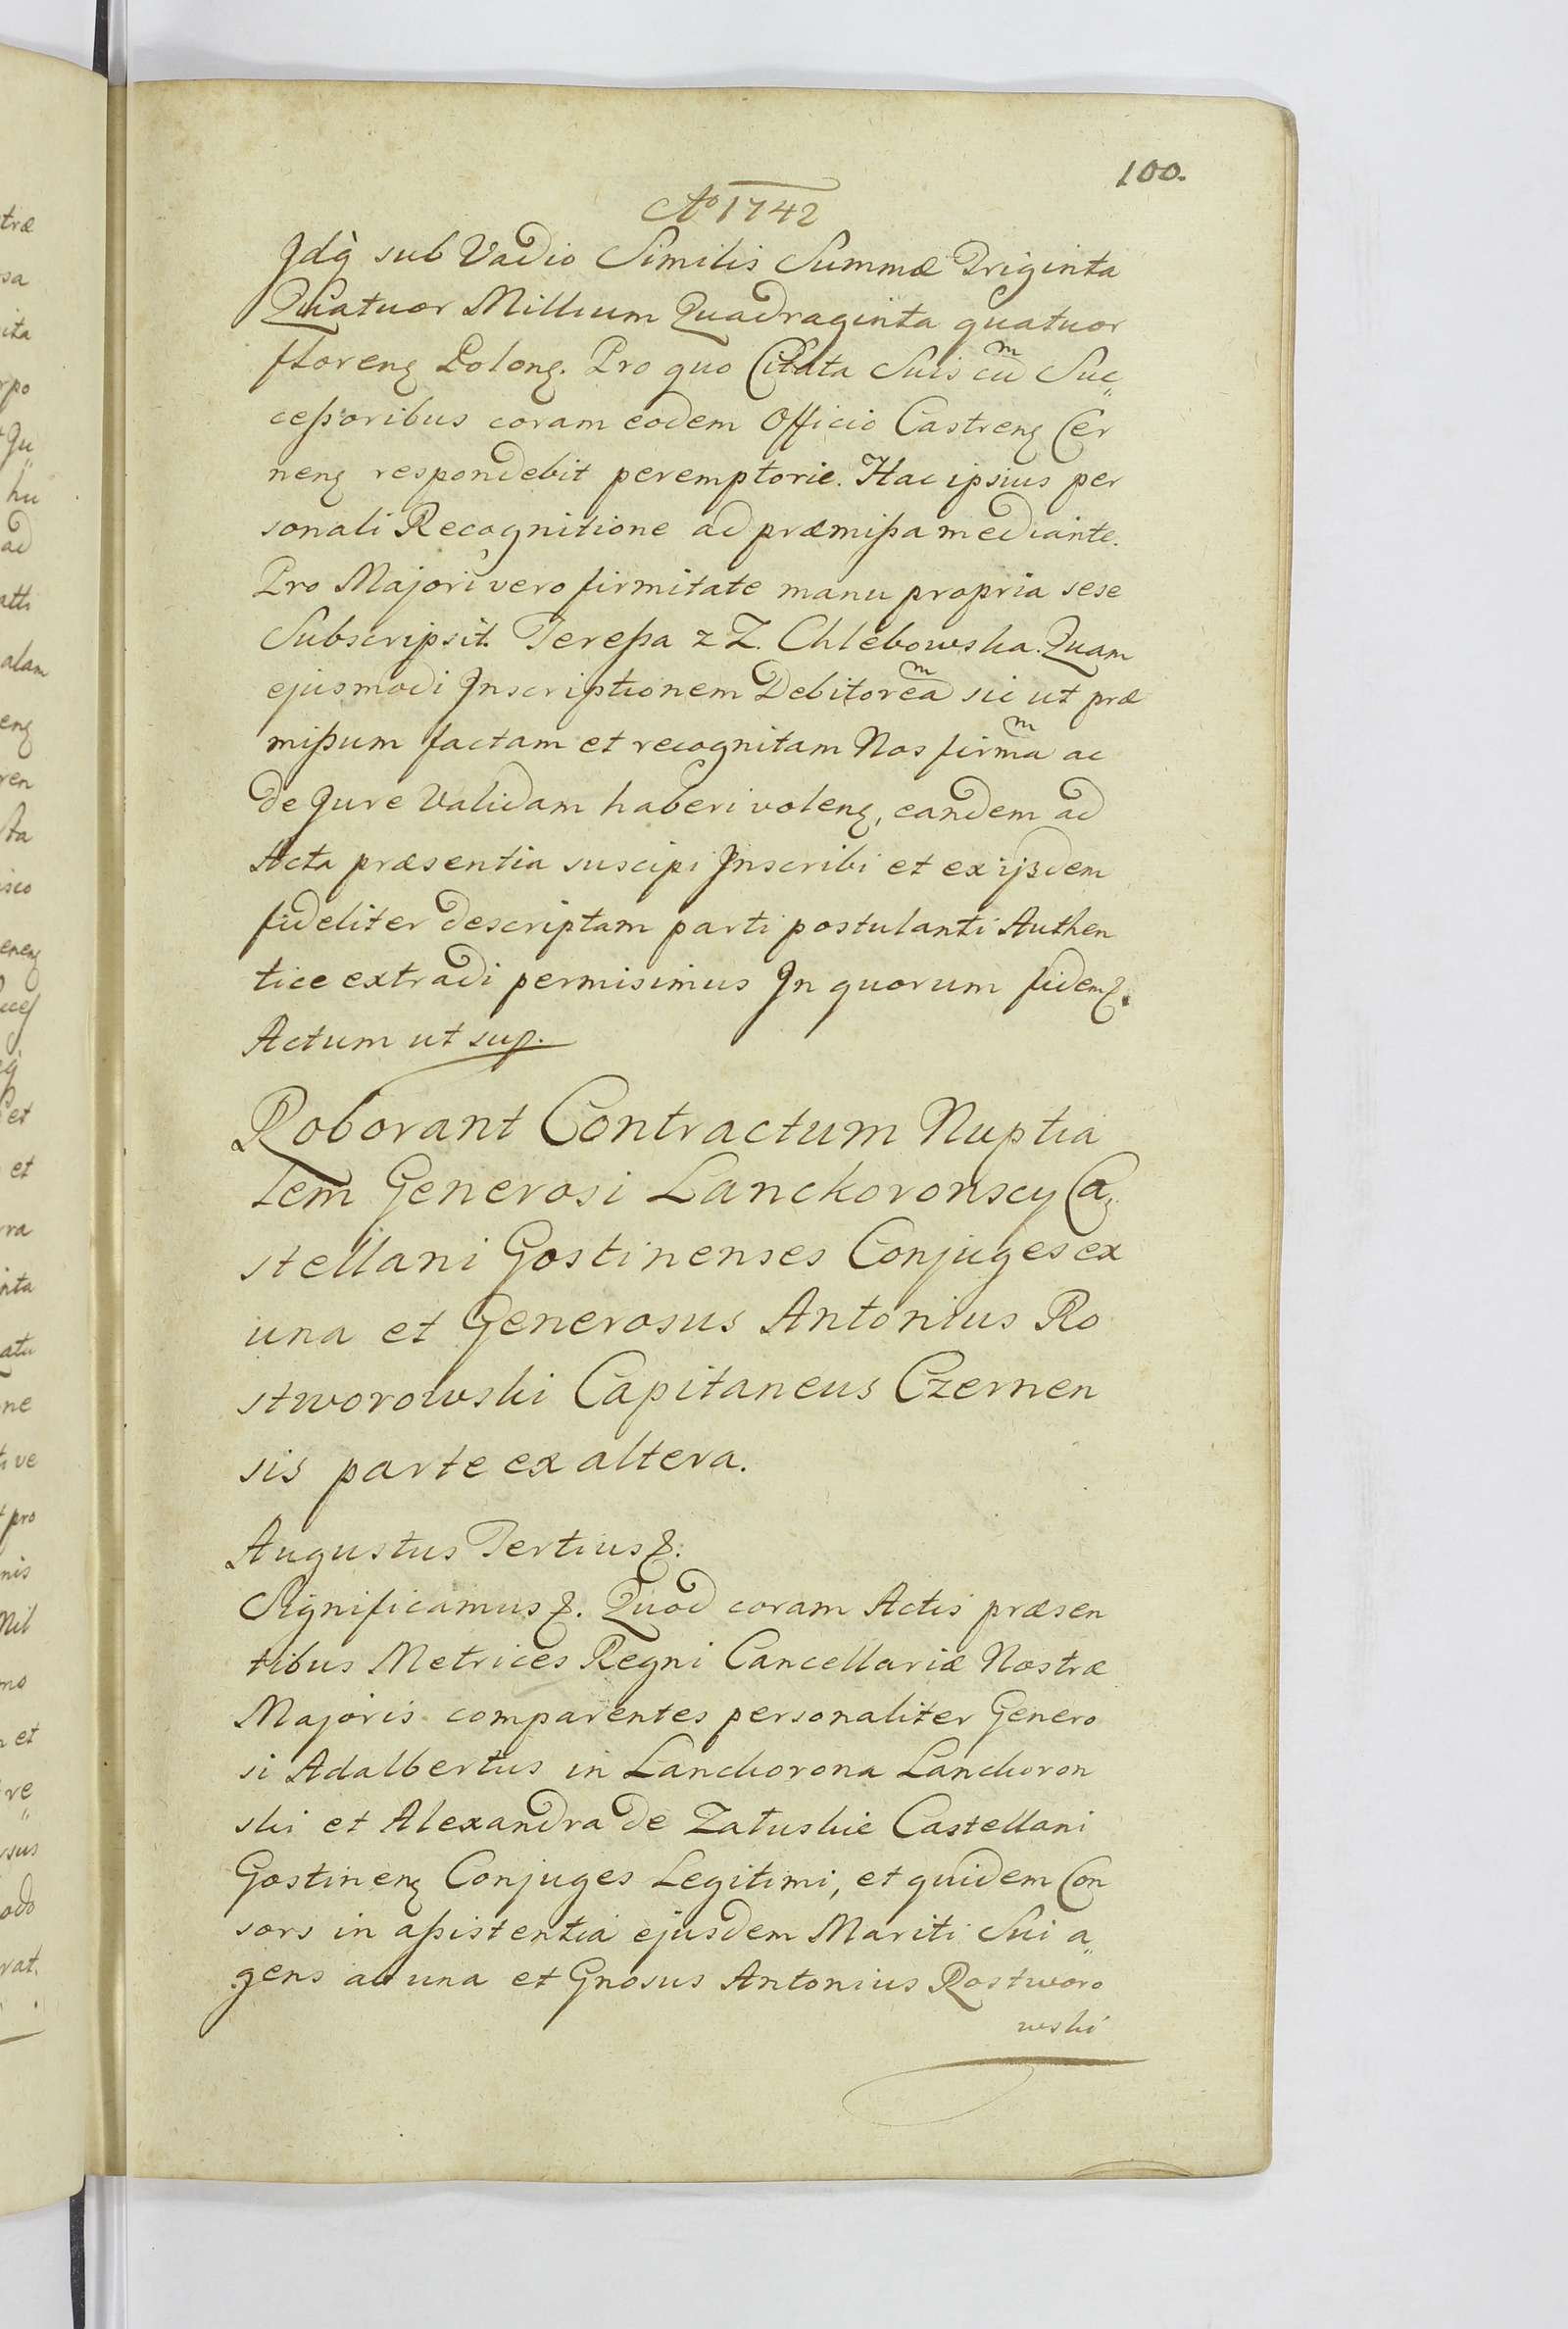 100.
Ao 1742
Idq̀ sub Vadio Similis Summæ Triginta
Quatuor Millium Quadraginta quatuor
florenꝫ Polonꝫ. Pro quo Citata Suis cũ Suc„
ceßoribus coram eodem Officio Castrenꝫ Cer
nenꝫ respondebit peremptorie. Hac ipsius per
sonali Recognitione ad præmißa mediante.
Pro Majori vero firmitate manu propria sese
Subscripsit. Tereßa z Z. Chlebowska. Quam
ejusmodi Inscriptionem Debitoreãm sic ut præ
mißum factam et recognitam Nos firmam ac
de Jure Validam haberi volenꝫ, eandem ad
Acta præsentia suscipi Inscribi et ex ijsdem
fideliter descriptam parti postulanti Authen
tice extradi permisimus In quorum fidemꝫ.
Actum ut sup.
Roborant Contractum Nuptia
lem Generosi Lanckoronscy Ca„
stellani Gostinenses Conjuges ex
una et Generosus Antonius Ro
stworowski Capitaneus Czernen
sis parte ex altera.
Augustus Tertius ꝫ.
Significamus ꝫ. Quod coram Actis præsen
tibus Metrices Regni Cancellariæ Nostræ
Majoris comparentes personaliter Genero
si Adalbertus in Lanckorona Lanckoron
ski et Alexandra de Załuskie Castellani
Gostinenꝫ Conjuges Legitimi, et quidem Con
sors in aßistentia ejusdem Mariti Sui a„
gens ab una et Gnosus Antonius Rostworo
wski
træ
sa
ita
rpo
Qu„
hu
ad
alam
enꝫ
ren
sta
isco
enenꝫ
et
et
ra
inta
atu
ne
ve
pro
nis
Mil
mo
et
re„
sus
odo
rat.